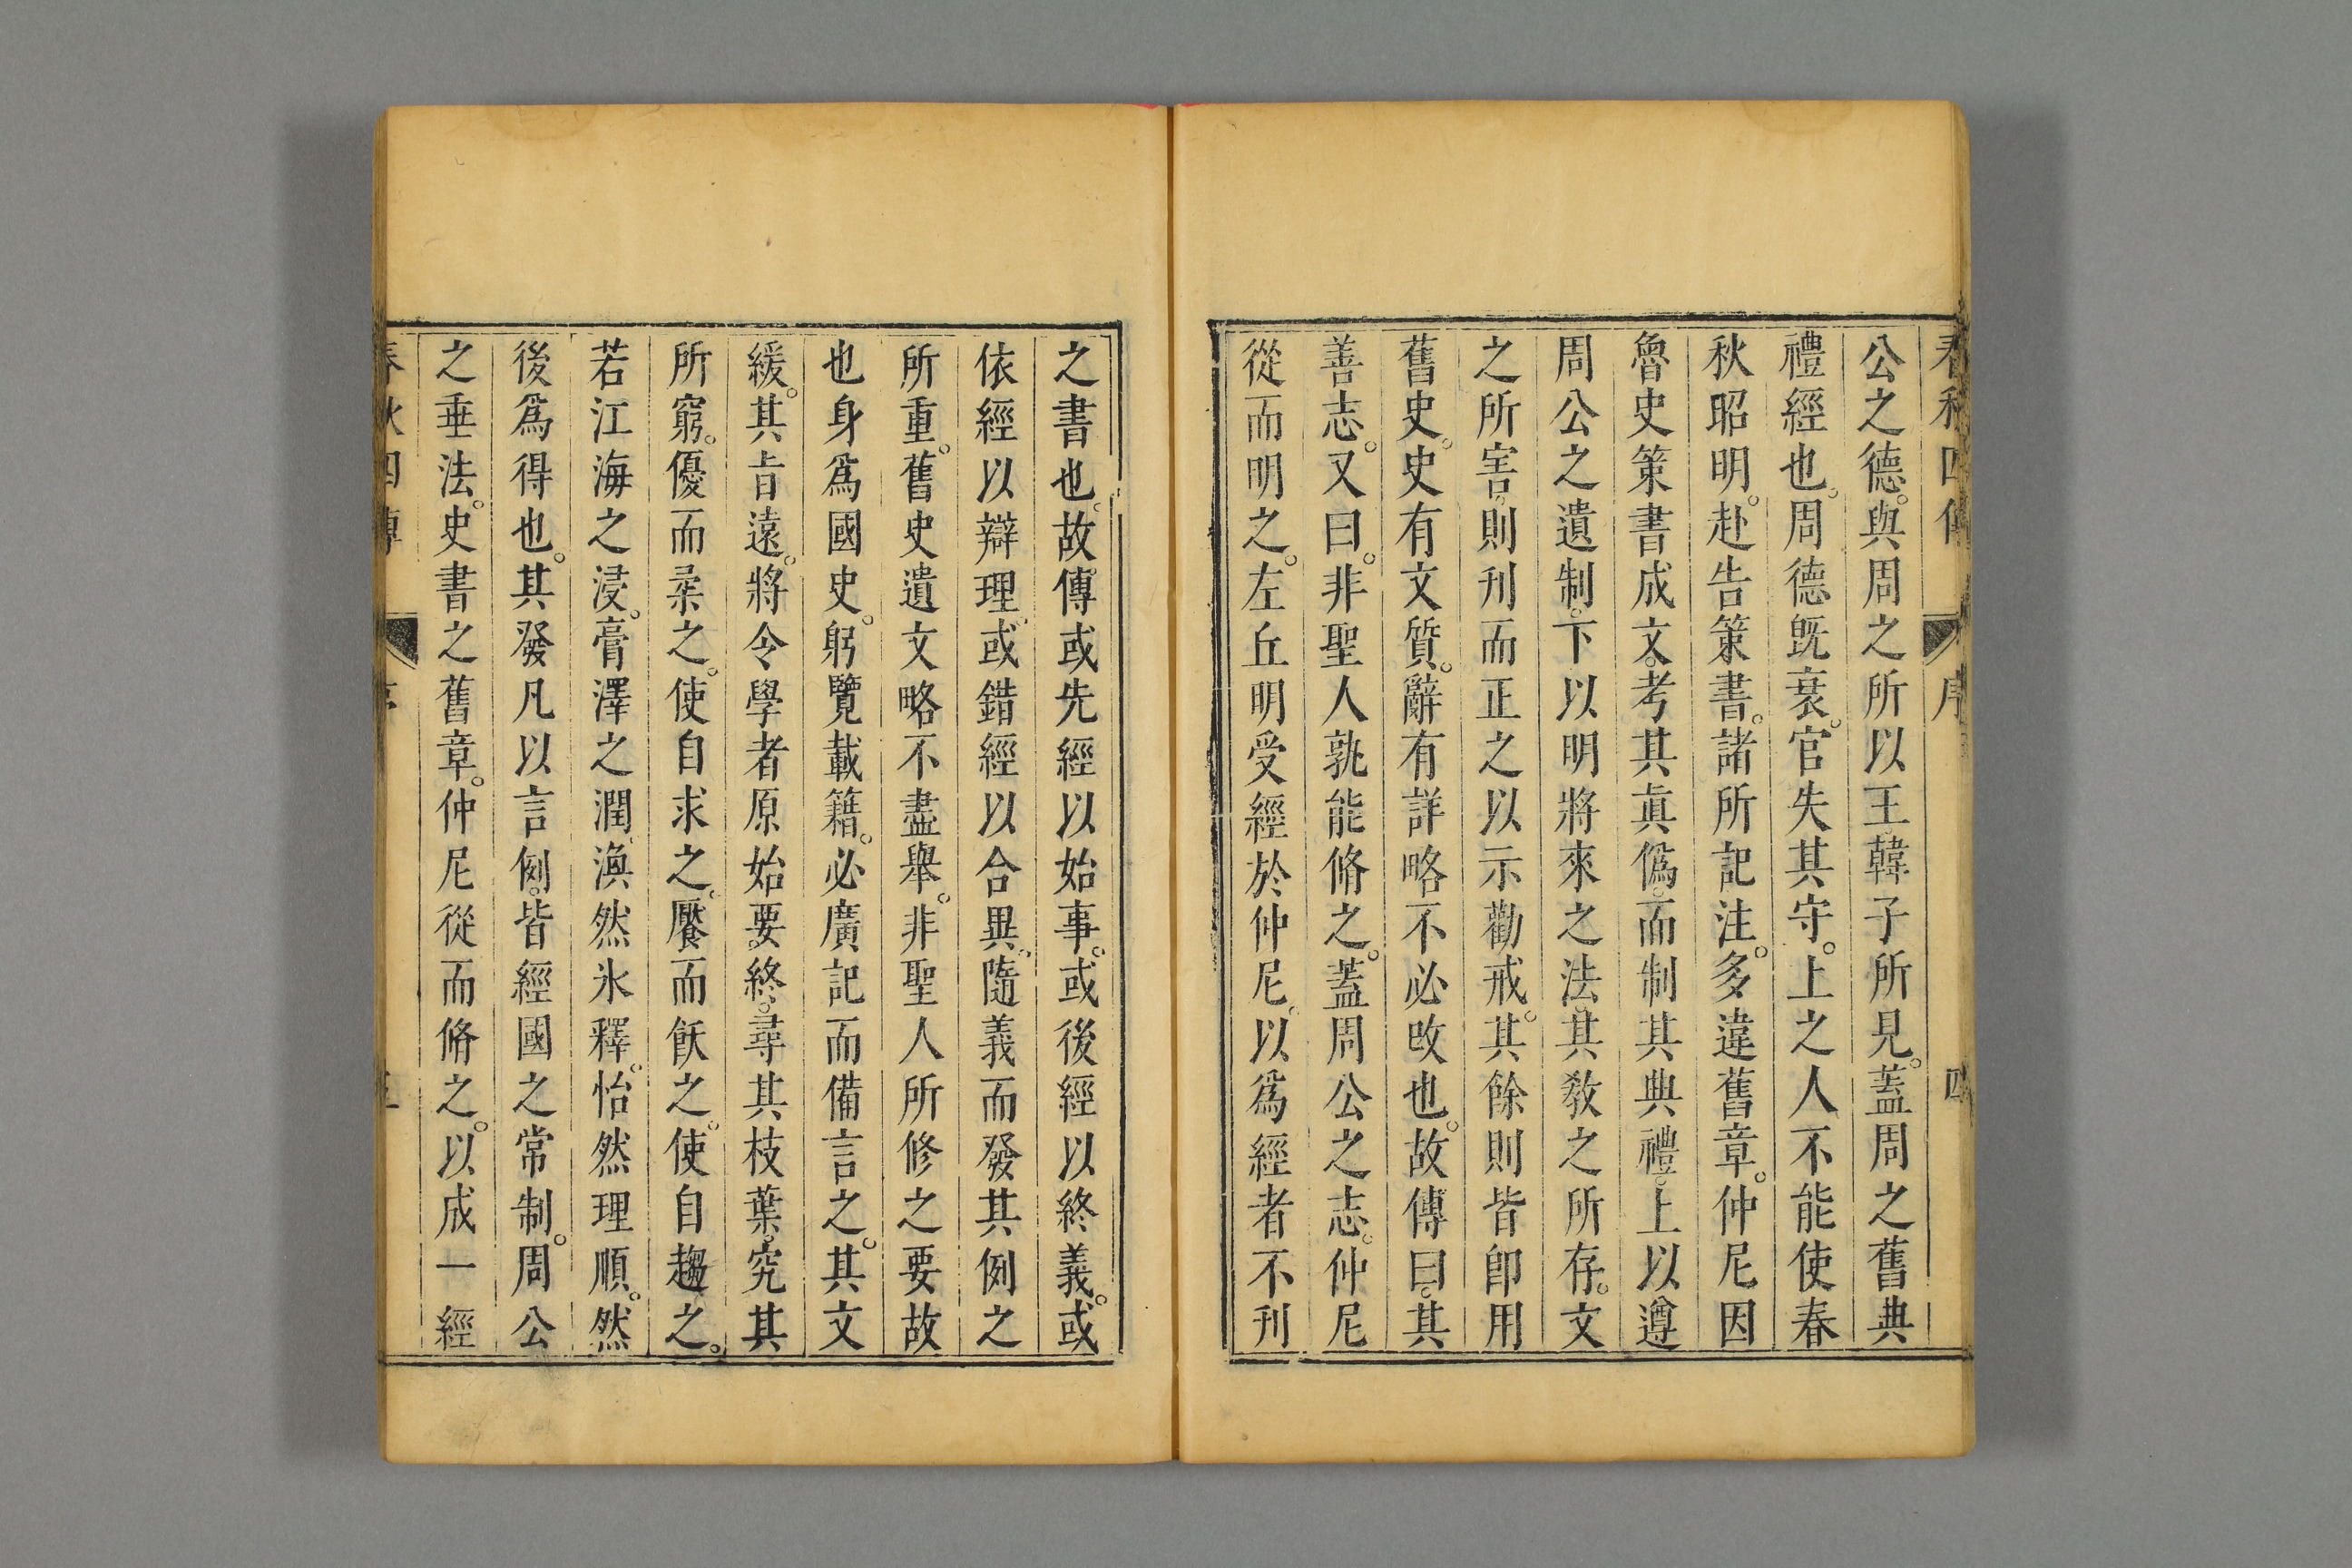 春秋四傳 序 四
公之德。與周之所以王。韓子所見。蓋周之舊典
禮經也。周德既衰。官失其守。上之人不能使春
秋昭明。赴告策書。諸所記注。多違舊章。仲尼因
魯史策書成文。考其眞僞。而制其典禮。上以遵
周公之遺制。下以明將來之法。其敎之所存。文
之所害。則刊而正之以示勸戒。其餘則皆卽用
舊史。史有文質。辭有詳略不必改也。故傳曰。其
善志。又曰。非聖人孰能脩之。蓋周公之志。仲尼
從而明之。左丘明受經於仲尼。以爲經者不刊
之書也。故傳或先經以始事。或後經以終義。或
依經以辯理。或錯經以合異。隨義而發其例之
所重。舊史遺文略不盡舉。非聖人所修之要故
也身爲國史。躬覽載籍。必廣記而備言之。其文
緩。其旨遠。將令學者原始要終。尋其枝葉。究其
所窮。優而柔之。使自求之。饜而飫之。使自趨之。
若江海之浸。膏澤之潤。渙然氷釋。怡然理順。然
後爲得也。其發凡以言例。皆經國之常制。周公
之垂法。史書之舊章。仲尼從而脩之。以成一經
春秋四傳 序